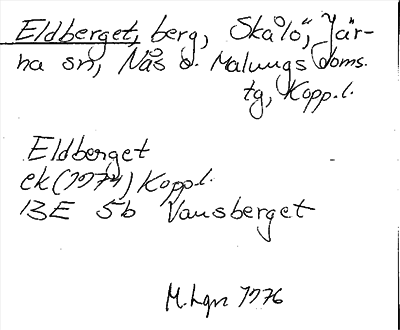 Eldberget, berg, Skålö, Jär-
na sn, Nås o. Malungs doms.
tg, Kopp.l.
Eldberget
ek (1974) Kopp.l.
13E 5b Vansberget
M.Lgn 1976